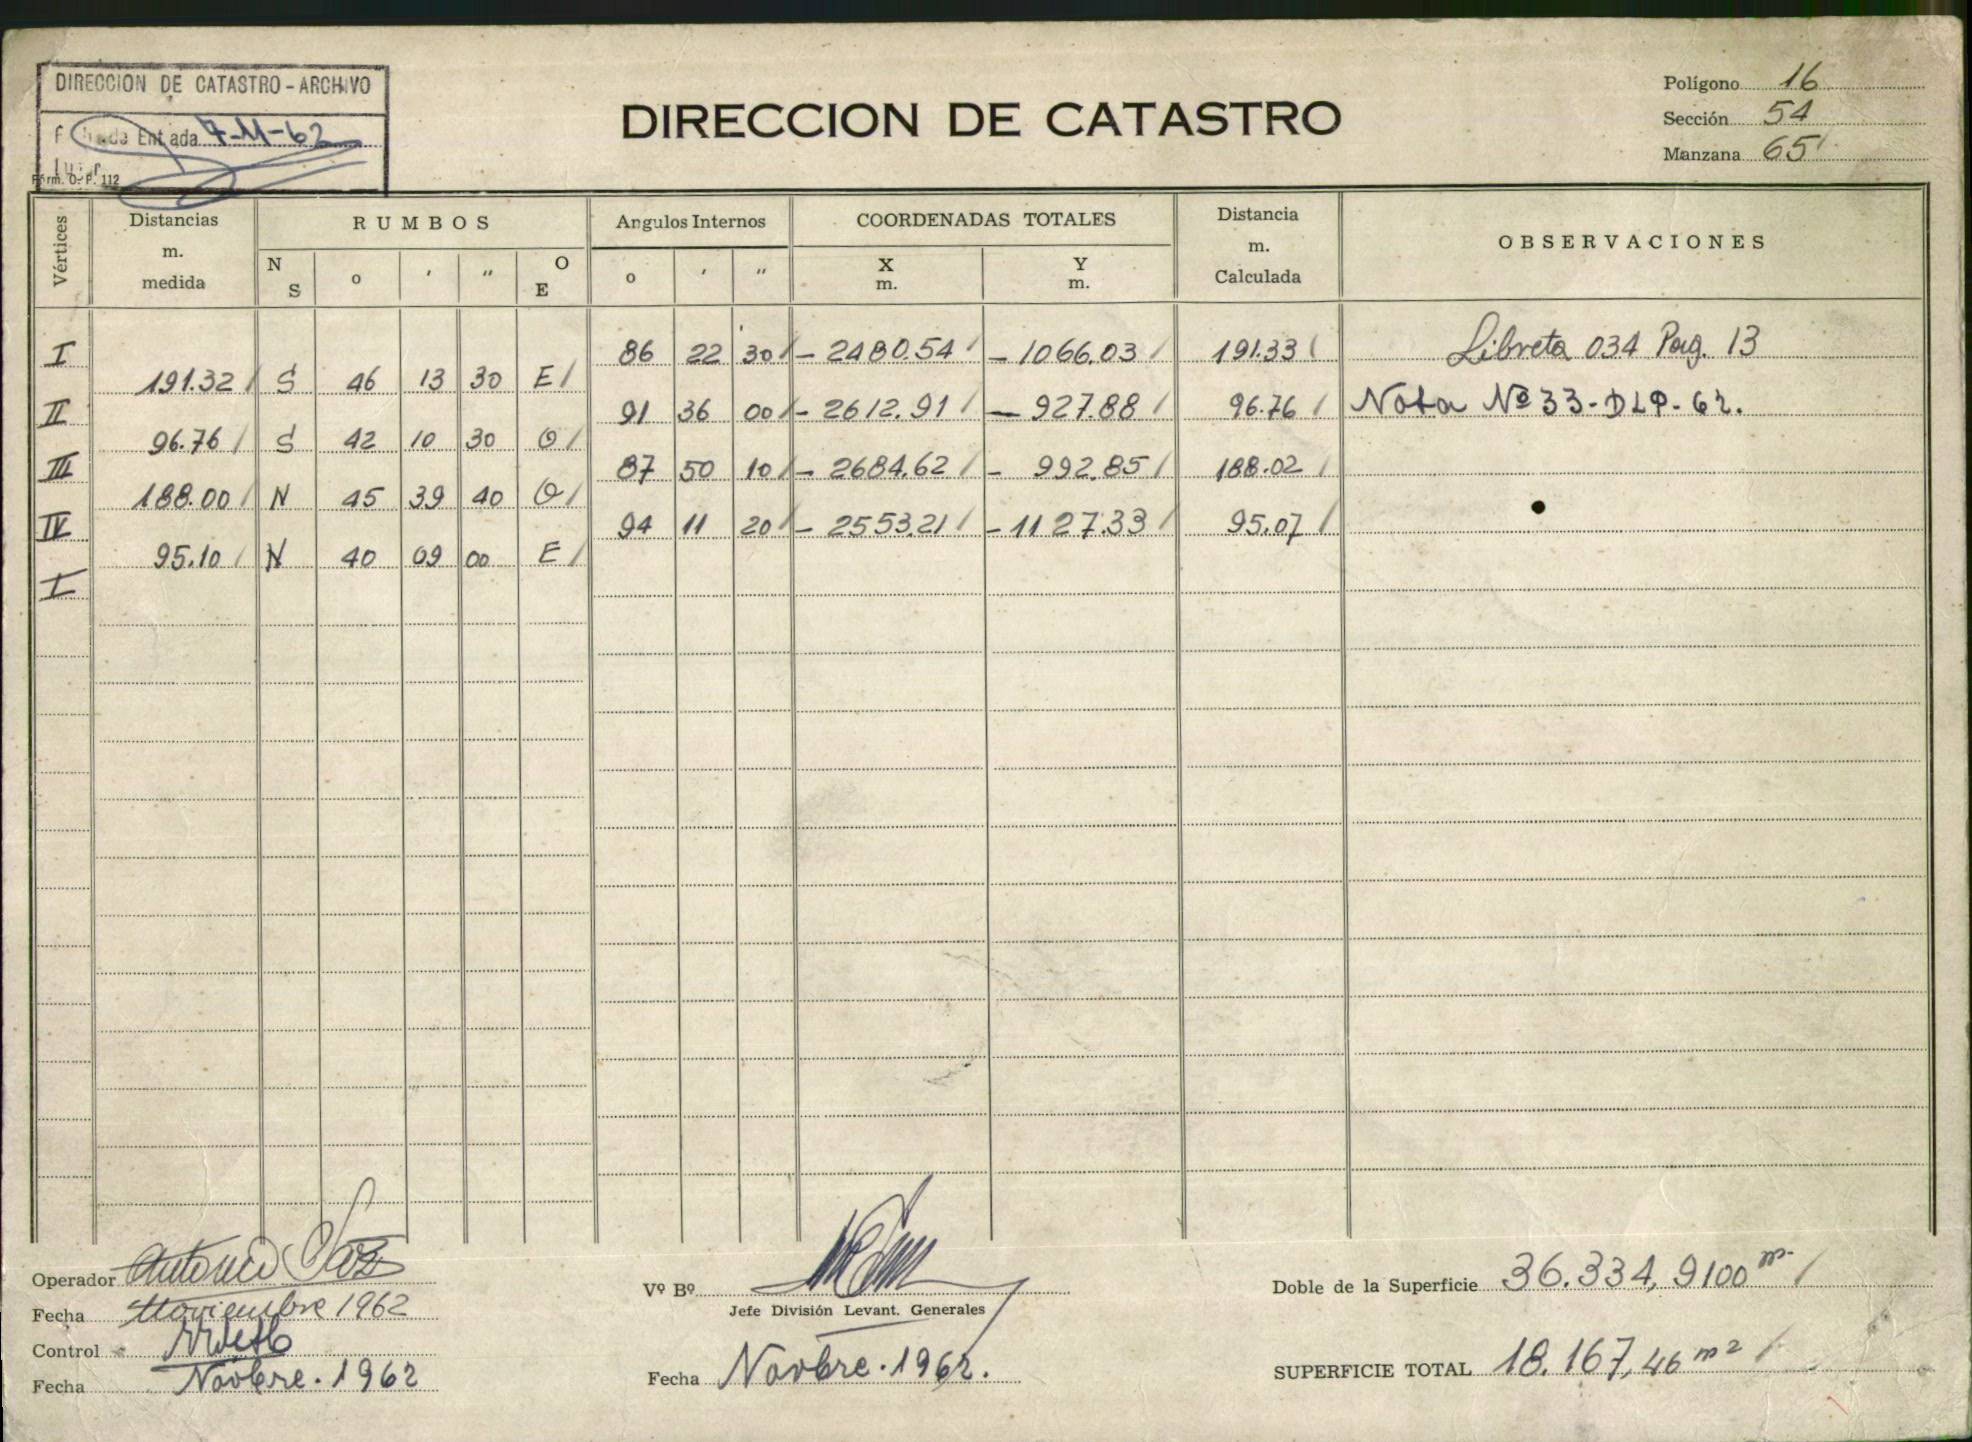 DIRECCION DE CATASTRO - ARCHIVO
Entrada 7-11-62
Form. O. P. 112
DIRECCION DE CATASTRO
Polígono 16
Sección 54
Manzana 65
Vértices Distancias m. medida RUMBOS Angulos Internos COORDENADAS TOTALES Distancia m. Calculada OBSERVACIONES
N S o ' " O E o ' " X m. Y m.
I 86 22 30 - 2480.54 - 1066.03 191.33 Libreta 034 Pag. 13
191.32 S 46 13 30 E
II 91 36 00 - 2612.91 - 927.88 96.76 Nota Nº 33-DLP-62.
96.76 S 42 10 30 O
III 87 50 10 - 2684.62 - 992.85 188.02
188.00 N 45 39 40 O
IV 94 11 20 - 2553.21 - 1127.33 95.07
95.10 N 40 09 00 E
I
Operador Antonio
Fecha Noviembre 1962
Control
Fecha Novbre. 1962
Vº Bº
Jefe División Levant. Generales
Fecha Novbre. 1962.
Doble de la Superficie 36.334,9100
SUPERFICIE TOTAL 18.167,46 m2